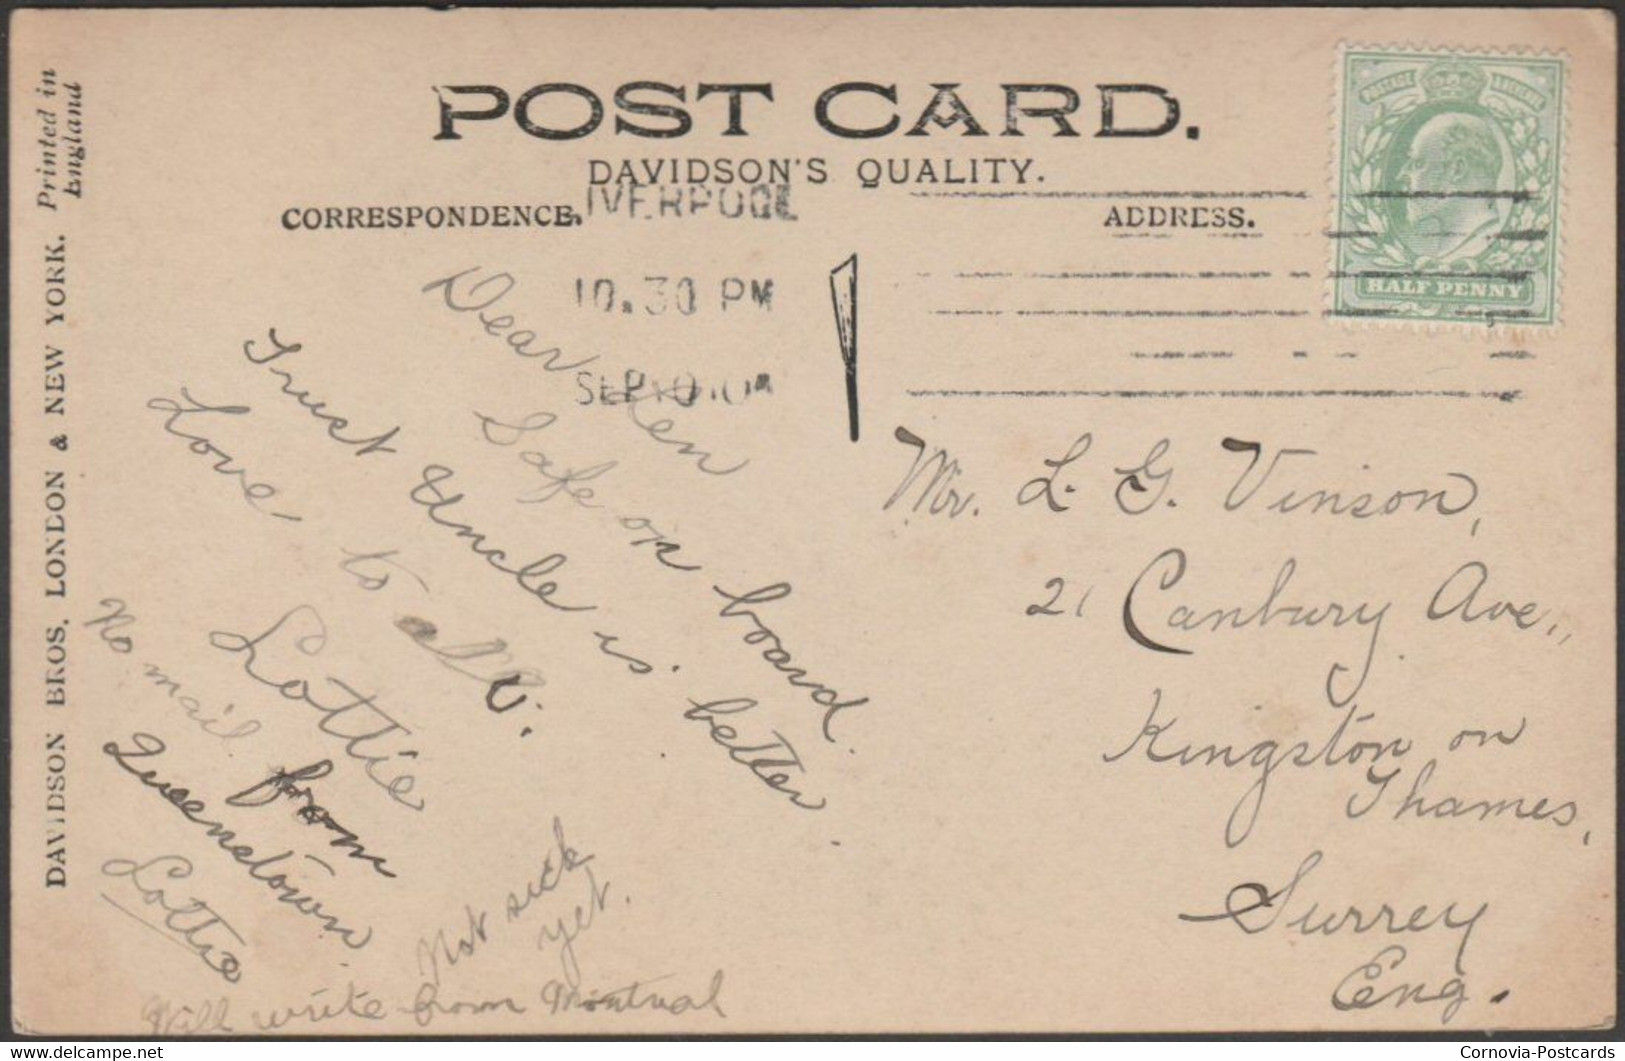 POST CARD.
DAVIDSON'S QUALITY.
CORRESPONDENCE.
ADDRESS.
IVERPOOL
10.30 PM
SEP
POSTAGE & REVENUE
HALF PENNY
DAVIDSON BROS. LONDON & NEW YORK. Printed in England
Dear Len
Safe on board.
Trust Uncle is better.
Love to all.
Lottie
No mail from
Queenstown
Lottie
Not sick
yet.
Will write from Montreal
Mr. L. G. Vinson,
21 Canbury Ave.,
Kingston on
Thames,
Surrey
Eng.
Cornovia-Postcards
www.delcampe.net